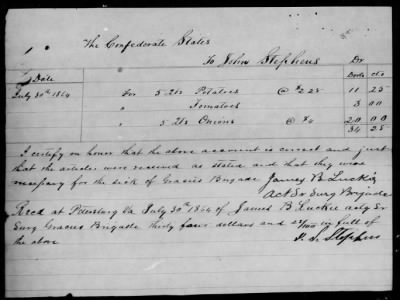 The Confederate States
To John Stephens Dr
Date Dorls cts
July 30th 1864 For 5 Potatoes @ $2.25 11 25
" Tomatoes 3 00
" 5 Onions @ $4 20 00
34 25
I certify on honor that the above account is correct and just
that the articles were received as stated and that they were
necessary for the sick of Gracies Brigade James B Luckie
Act Sr Surg Brigade
Recd at Petersburg Va July 30th 1864 of James B Luckie actg Sr
Surg Gracies Brigade thirty four dollars and 25/100 in full of
the above
Stephens